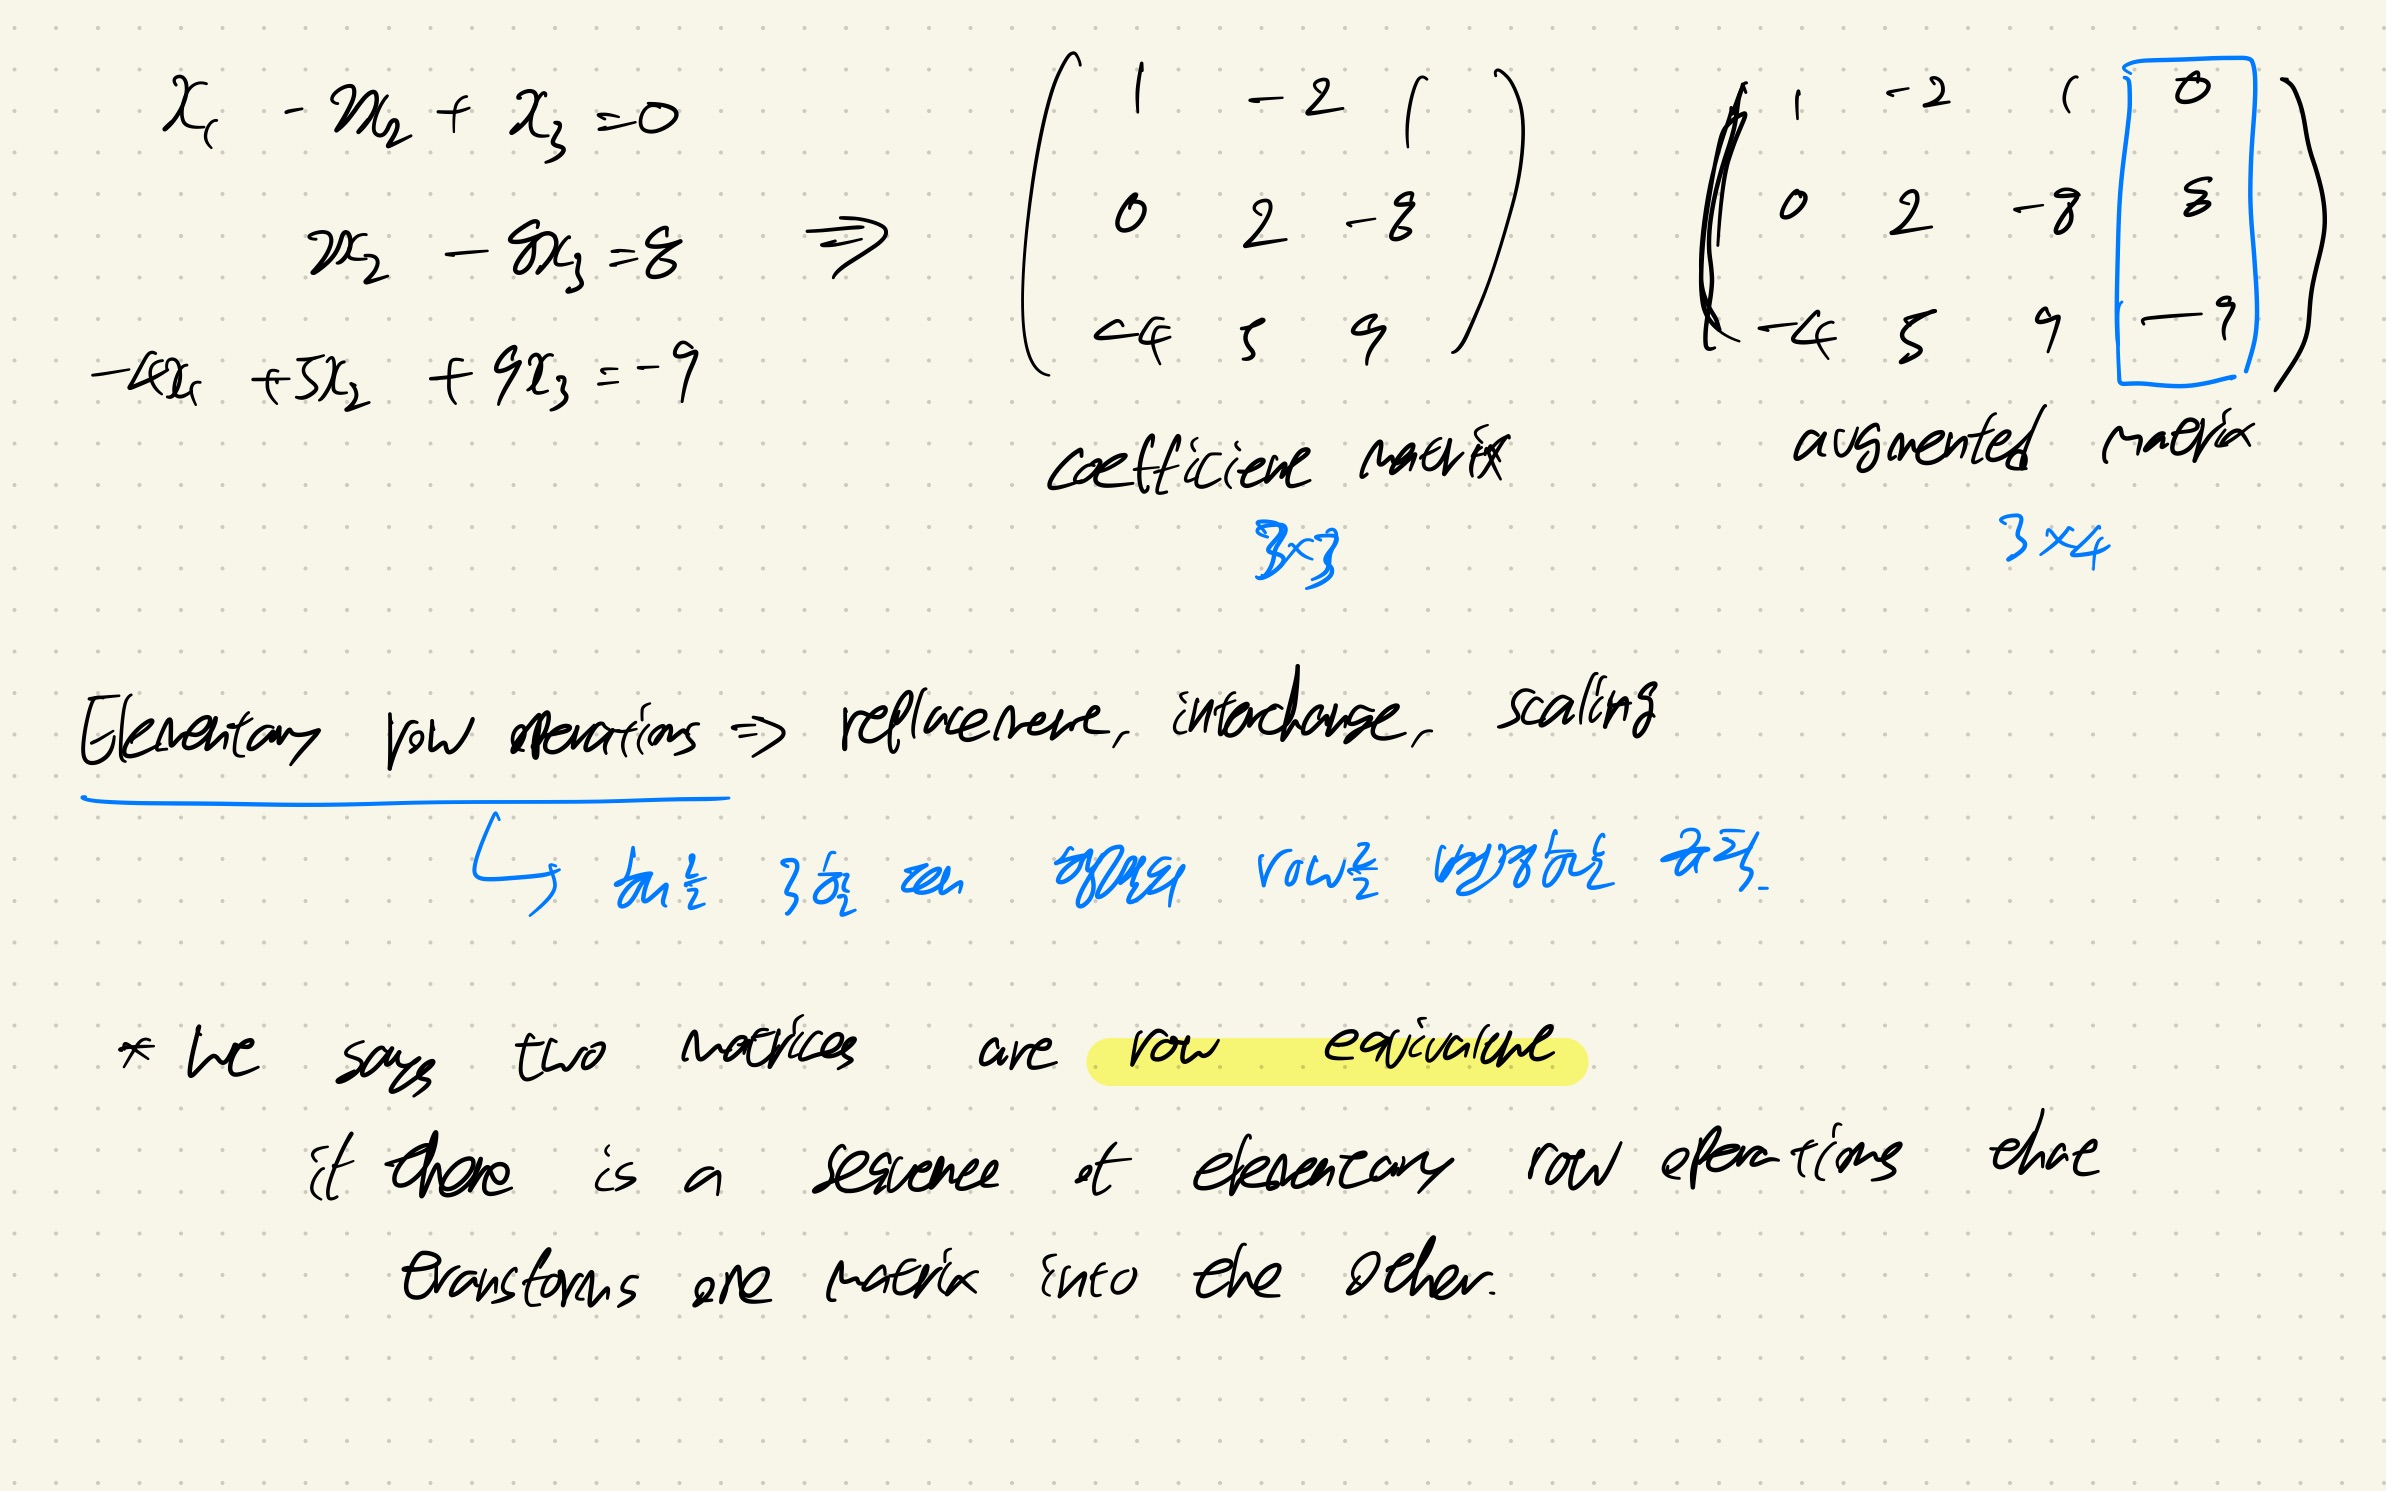 x₁ - 2x₂ + x₃ = 0
2x₂ - 8x₃ = 8 ⇒
-4x₁ + 5x₂ + 9x₃ = -9
( 1 -2 1
0 2 -8
-4 5 9 )
coefficient matrix
3×3
( 1 -2 1 0
0 2 -8 8
-4 5 9 -9 )
augmented matrix
3×4
Elementary row operations ⇒ replacement, interchange, scaling
행렬의 row를 변경하는 규칙.
* We says two matrices are row equivalent
if there is a sequence of elementary row operations that
transforms one matrix into the other.